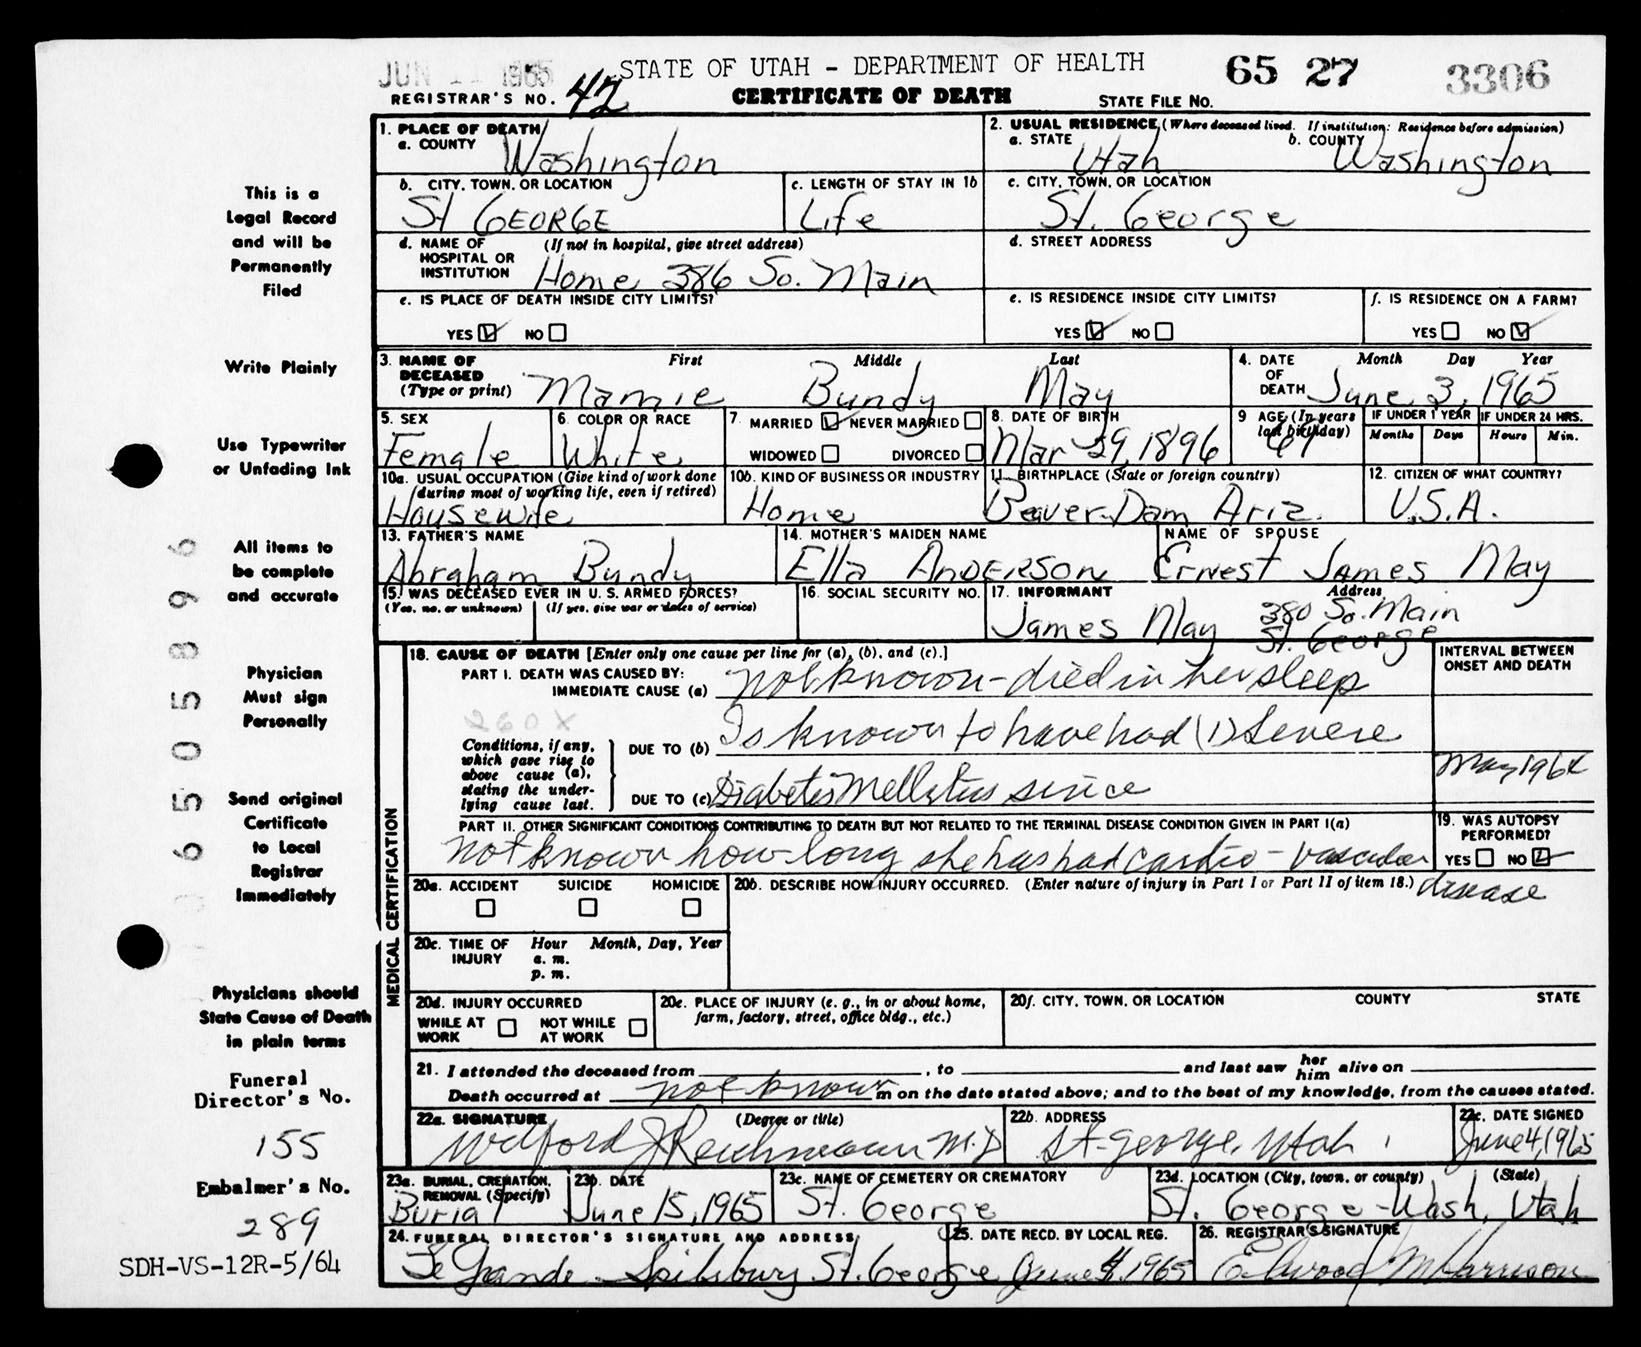 JUN 11 1965
STATE OF UTAH - DEPARTMENT OF HEALTH
65 27
3306
REGISTRAR'S NO. 42
CERTIFICATE OF DEATH
STATE FILE NO.
This is a
Legal Record
and will be
Permanently
Filed
Write Plainly
Use Typewriter
or Unfading Ink
All items to
be complete
and accurate
Physician
Must sign
Personally
Send original
Certificate
to Local
Registrar
Immediately
Physicians should
State Cause of Death
in plain terms
Funeral
Director's No.
155
Embalmer's No.
289
SDH-VS-12R-5/64
65058896
1. PLACE OF DEATH
a. COUNTY Washington
2. USUAL RESIDENCE (Where deceased lived. If institution: Residence before admission)
a. STATE Utah b. COUNTY Washington
b. CITY, TOWN, OR LOCATION
St GEORGE
c. LENGTH OF STAY IN 1b
Life
c. CITY, TOWN, OR LOCATION
St. George
d. NAME OF HOSPITAL OR INSTITUTION (If not in hospital, give street address)
Home 386 So. Main
d. STREET ADDRESS
e. IS PLACE OF DEATH INSIDE CITY LIMITS?
YES NO
e. IS RESIDENCE INSIDE CITY LIMITS?
YES NO
f. IS RESIDENCE ON A FARM?
YES NO
3. NAME OF DECEASED (Type or print)
First Middle Last
Mamie Bundy May
4. DATE OF DEATH
Month Day Year
June 3, 1965
5. SEX
Female
6. COLOR OR RACE
White
7 MARRIED NEVER MARRIED
WIDOWED DIVORCED
8. DATE OF BIRTH
Mar 29, 1896
9 AGE (In years last birthday)
69
IF UNDER 1 YEAR
Months Days
IF UNDER 24 HRS.
Hours Min.
10a. USUAL OCCUPATION (Give kind of work done during most of working life, even if retired)
Housewife
10b. KIND OF BUSINESS OR INDUSTRY
Home
11. BIRTHPLACE (State or foreign country)
Beaver Dam Ariz.
12. CITIZEN OF WHAT COUNTRY?
U.S.A.
13. FATHER'S NAME
Abraham Bundy
14. MOTHER'S MAIDEN NAME
Ella ANDERSON
NAME OF SPOUSE
Ernest James May
15. WAS DECEASED EVER IN U. S. ARMED FORCES?
(Yes, no, or unknown) (If yes, give war or dates of service)
16. SOCIAL SECURITY NO.
17. INFORMANT Address
James May 380 So. Main
St. George
MEDICAL CERTIFICATION
18. CAUSE OF DEATH [Enter only one cause per line for (a), (b), and (c).]
INTERVAL BETWEEN ONSET AND DEATH
PART I. DEATH WAS CAUSED BY:
IMMEDIATE CAUSE (a) not known - died in her sleep
260X
Conditions, if any, which gave rise to above cause (a), stating the underlying cause last.
DUE TO (b) Is known to have had (1) Severe
DUE TO (c) Diabetes Mellitus since
May 1964
PART II. OTHER SIGNIFICANT CONDITIONS CONTRIBUTING TO DEATH BUT NOT RELATED TO THE TERMINAL DISEASE CONDITION GIVEN IN PART I(a)
not known how long she has had cardio-vascular
disease
19. WAS AUTOPSY PERFORMED?
YES NO
20a. ACCIDENT SUICIDE HOMICIDE
20b. DESCRIBE HOW INJURY OCCURRED. (Enter nature of injury in Part I or Part II of item 18.)
20c. TIME OF INJURY Hour Month, Day, Year
a. m.
p. m.
20d. INJURY OCCURRED
WHILE AT WORK NOT WHILE AT WORK
20e. PLACE OF INJURY (e. g., in or about home, farm, factory, street, office bldg., etc.)
20f. CITY, TOWN, OR LOCATION COUNTY STATE
21. I attended the deceased from , to and last saw her him alive on
Death occurred at not known m on the date stated above; and to the best of my knowledge, from the causes stated.
22a. SIGNATURE (Degree or title)
Wilford J Reichmann M.D
22b. ADDRESS
St-George, Utah
22c. DATE SIGNED
June 4, 1965
23a. BURIAL, CREMATION, REMOVAL (Specify)
Burial
23b. DATE
June 5, 1965
23c. NAME OF CEMETERY OR CREMATORY
St. George
23d. LOCATION (City, town, or county) (State)
St. George - Wash, Utah
24. FUNERAL DIRECTOR'S SIGNATURE AND ADDRESS
LeGrande Spilsbury St. George
25. DATE RECD. BY LOCAL REG.
June 4, 1965
26. REGISTRAR'S SIGNATURE
Elwood J McHarrison